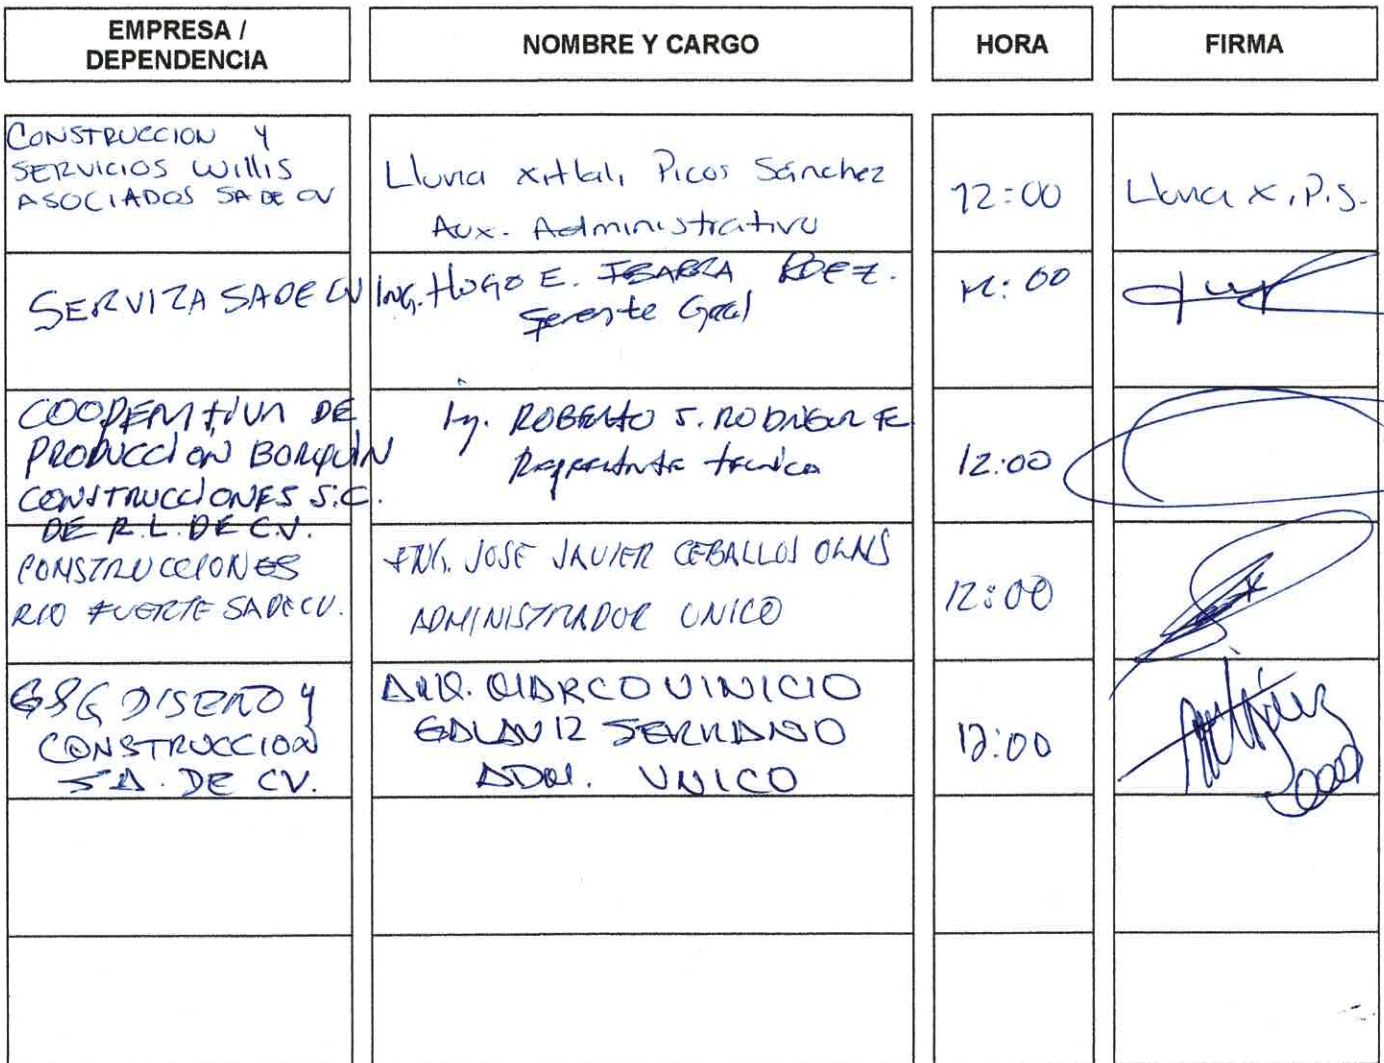 EMPRESA /
DEPENDENCIA
NOMBRE Y CARGO
HORA
FIRMA
CONSTRUCCION Y
SERVICIOS WILLIS
ASOCIADOS SA DE CV
Lluvia Xitlali Picos Sánchez
Aux. Administrativo
12:00
Lluvia X. P. S.
SERVIZA SA DE CV
ING. HUGO E. IBARRA RDEZ.
Gerente Gral
12:00
COOPERATIVA DE
PRODUCCION BORQUIN
CONSTRUCCIONES S.C.
DE R.L. DE C.V.
Ing. ROBERTO J. RODRIGUEZ
Representante tecnico
12:00
CONSTRUCCIONES
RIO FUERTE SA DE CV.
ING. JOSE JAVIER CEBALLOS
ADMINISTRADOR UNICO
12:00
DISEÑO Y
CONSTRUCCION
S.A. DE CV.
ARQ. MARCO VINICIO
GALAVIZ SERRANO
ADM. UNICO
12:00